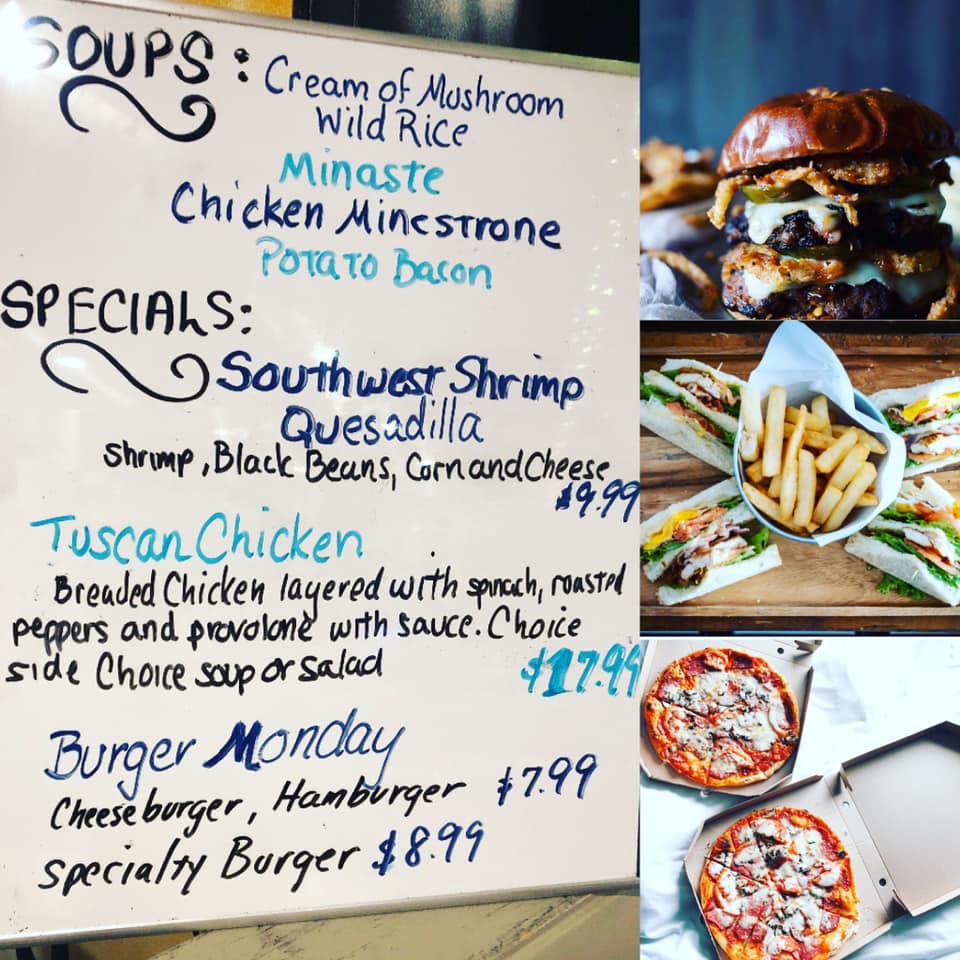 SOUPS:
Cream of Mushroom
Wild Rice
Minaste
Chicken Minestrone
Potato Bacon
SPECIALS:
Southwest Shrimp
Quesadilla
Shrimp, Black Beans, Corn and Cheese
$9.99
Tuscan Chicken
Breaded Chicken layered with spinach, roasted
peppers and provolone with sauce. Choice
side Choice soup or salad
$17.99
Burger Monday
Cheeseburger, Hamburger $7.99
specialty Burger $8.99